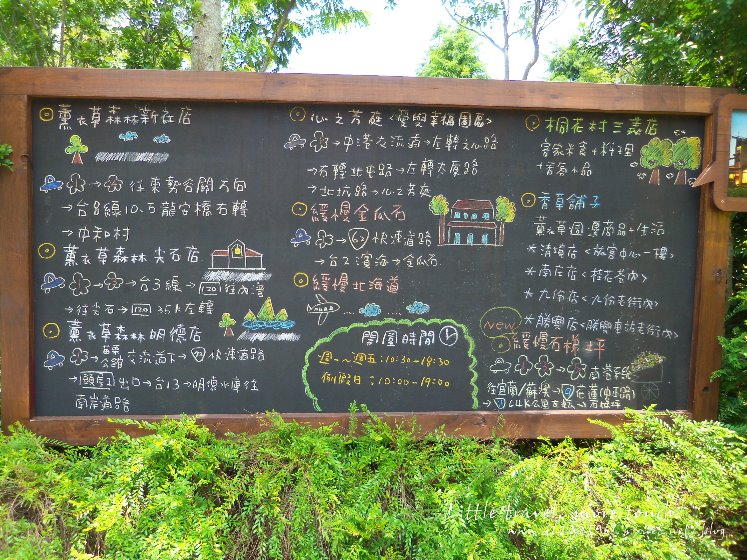 薰衣草森林 新社店
往東勢谷關方向
→台8線10.5 龍安橋右轉
→中和村
薰衣草森林 尖石店
→台3線→120往內灣
→往尖石→120 35K左轉
薰衣草森林 明德店
苗栗公館交流道下→72快速道路
→頭屋2出口→台13→明德水庫往
南岸道路
心之芳庭
→中港交流道→左轉文心路
→右轉北屯路→左轉太原路
→北坑路→心之芳庭
緩慢金瓜石
→62快速道路
→台2濱海→金瓜石
緩慢北海道
開園時間
週一~週五:10:30-18:30
例假日:10:00-19:00
桐花村三義店
客家米食+粄子
香草舖子
薰衣草園週商品+生活
*清境店<故宮中心一樓>
*南庄店<桂花巷內>
*九份店<九份老街內>
*勝興店<勝興車站老街內>
New
緩慢石梯坪
→南營
往宜蘭/蘇澳→9花蓮
64K
Little travel, more touch